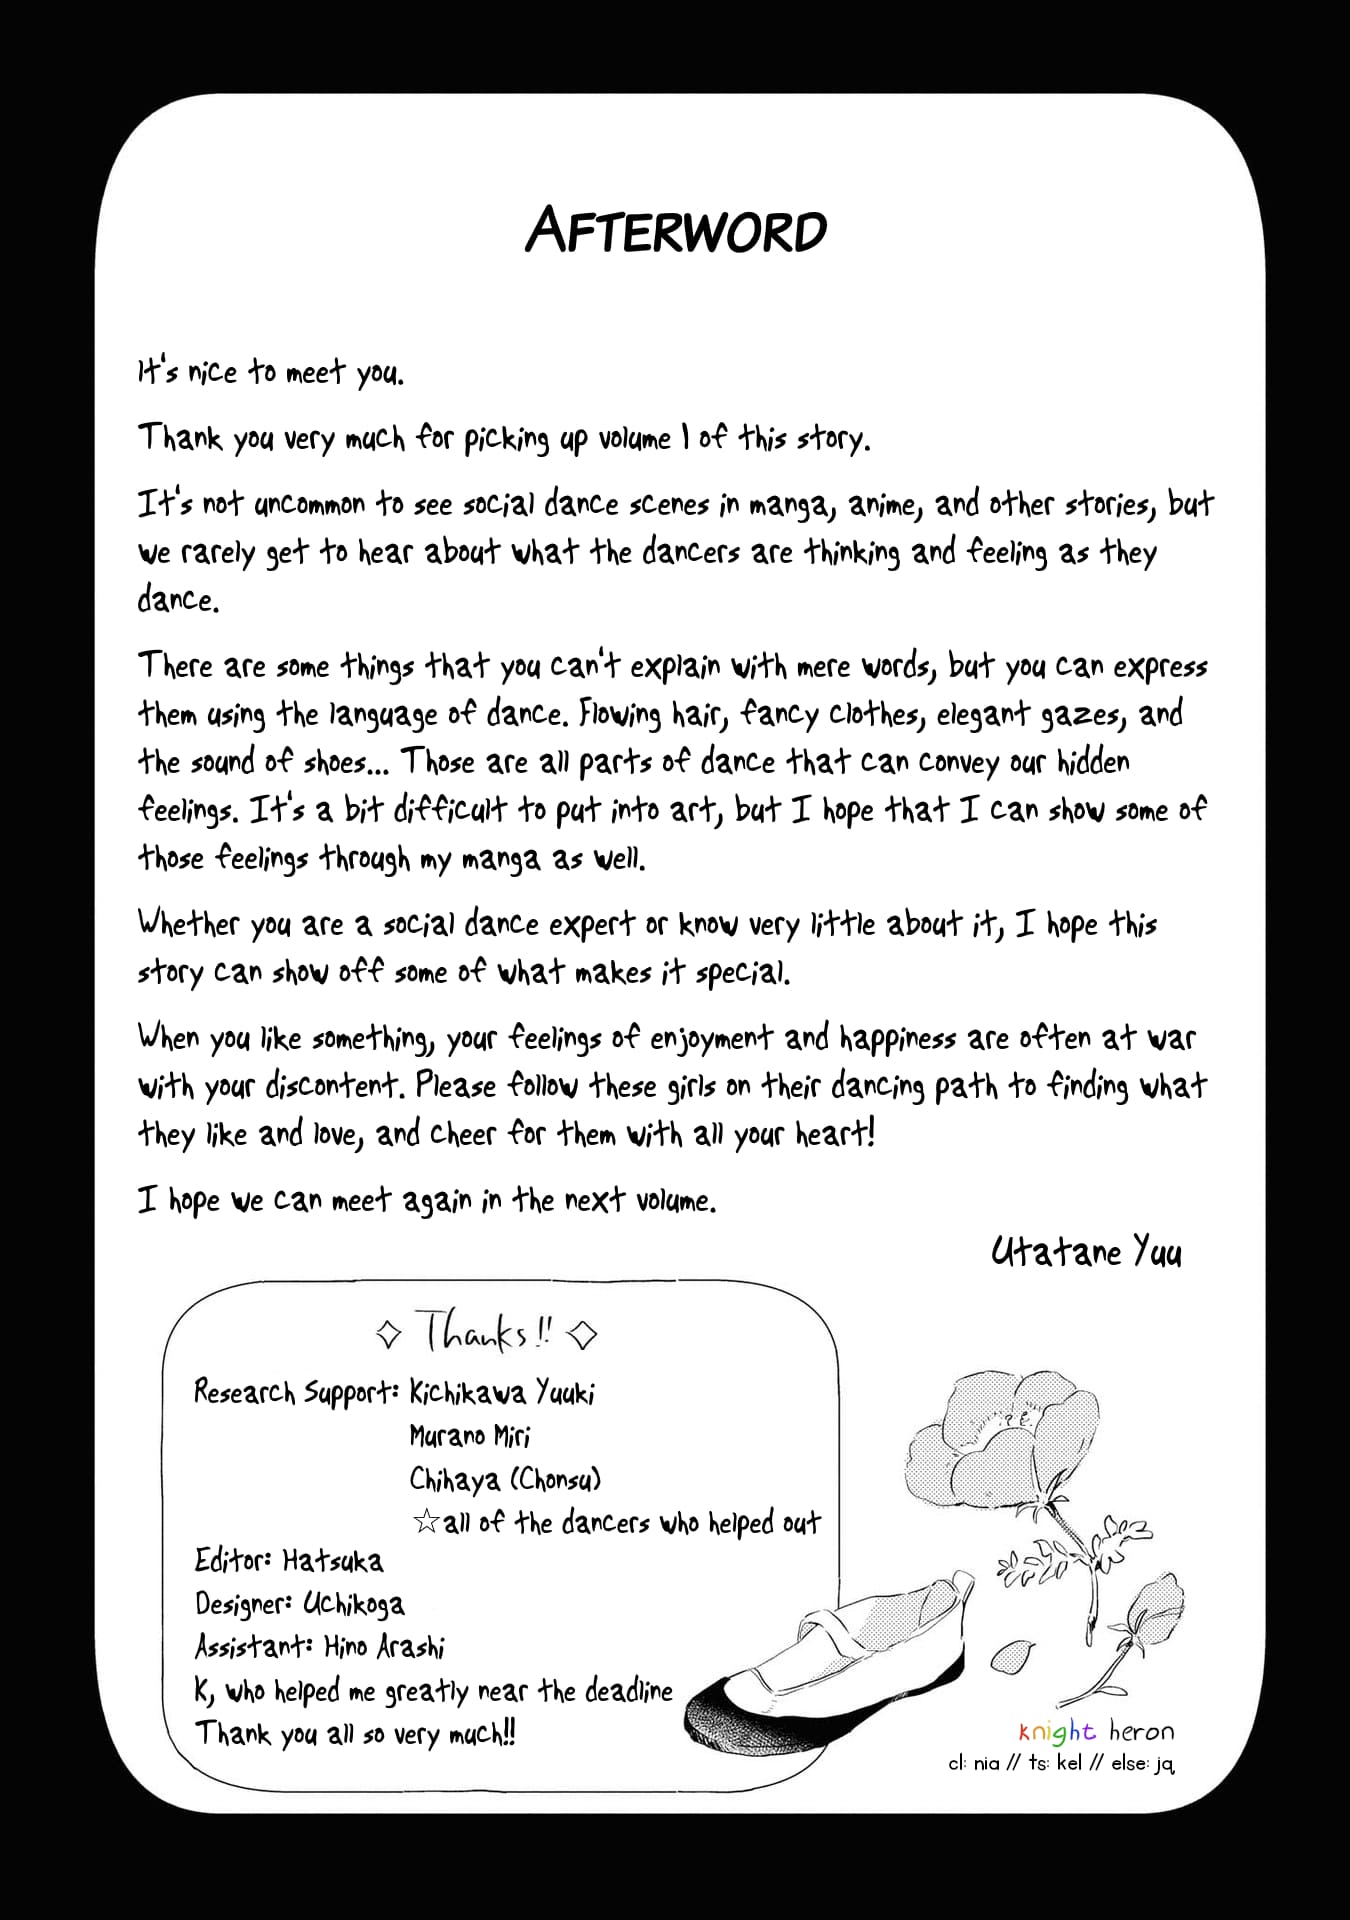 AFTERWORD
It's nice to meet you.
Thank you very much for picking up volume 1 of this story.
It's not uncommon to see social dance scenes in manga, anime, and other stories, but
we rarely get to hear about what the dancers are thinking and feeling as they
dance.
There are some things that you can't explain with mere words, but you can express
them using the language of dance. Flowing hair, fancy clothes, elegant gazes, and
the sound of shoes... Those are all parts of dance that can convey our hidden
feelings. It's a bit difficult to put into art, but I hope that I can show some of
those feelings through my manga as well.
Whether you are a social dance expert or know very little about it, I hope this
story can show off some of what makes it special.
When you like something, your feelings of enjoyment and happiness are often at war
with your discontent. Please follow these girls on their dancing path to finding what
they like and love, and cheer for them with all your heart!
I hope we can meet again in the next volume.
Utatane Yuu
✧ Thanks!! ✧
Research Support: Kichikawa Yuuki
Murano Miri
Chihaya (Chonsu)
☆all of the dancers who helped out
Editor: Hatsuka
Designer: Uchikoga
Assistant: Hino Arashi
K, who helped me greatly near the deadline
Thank you all so very much!!
knight heron
cl: nia // ts: kel // else: jq